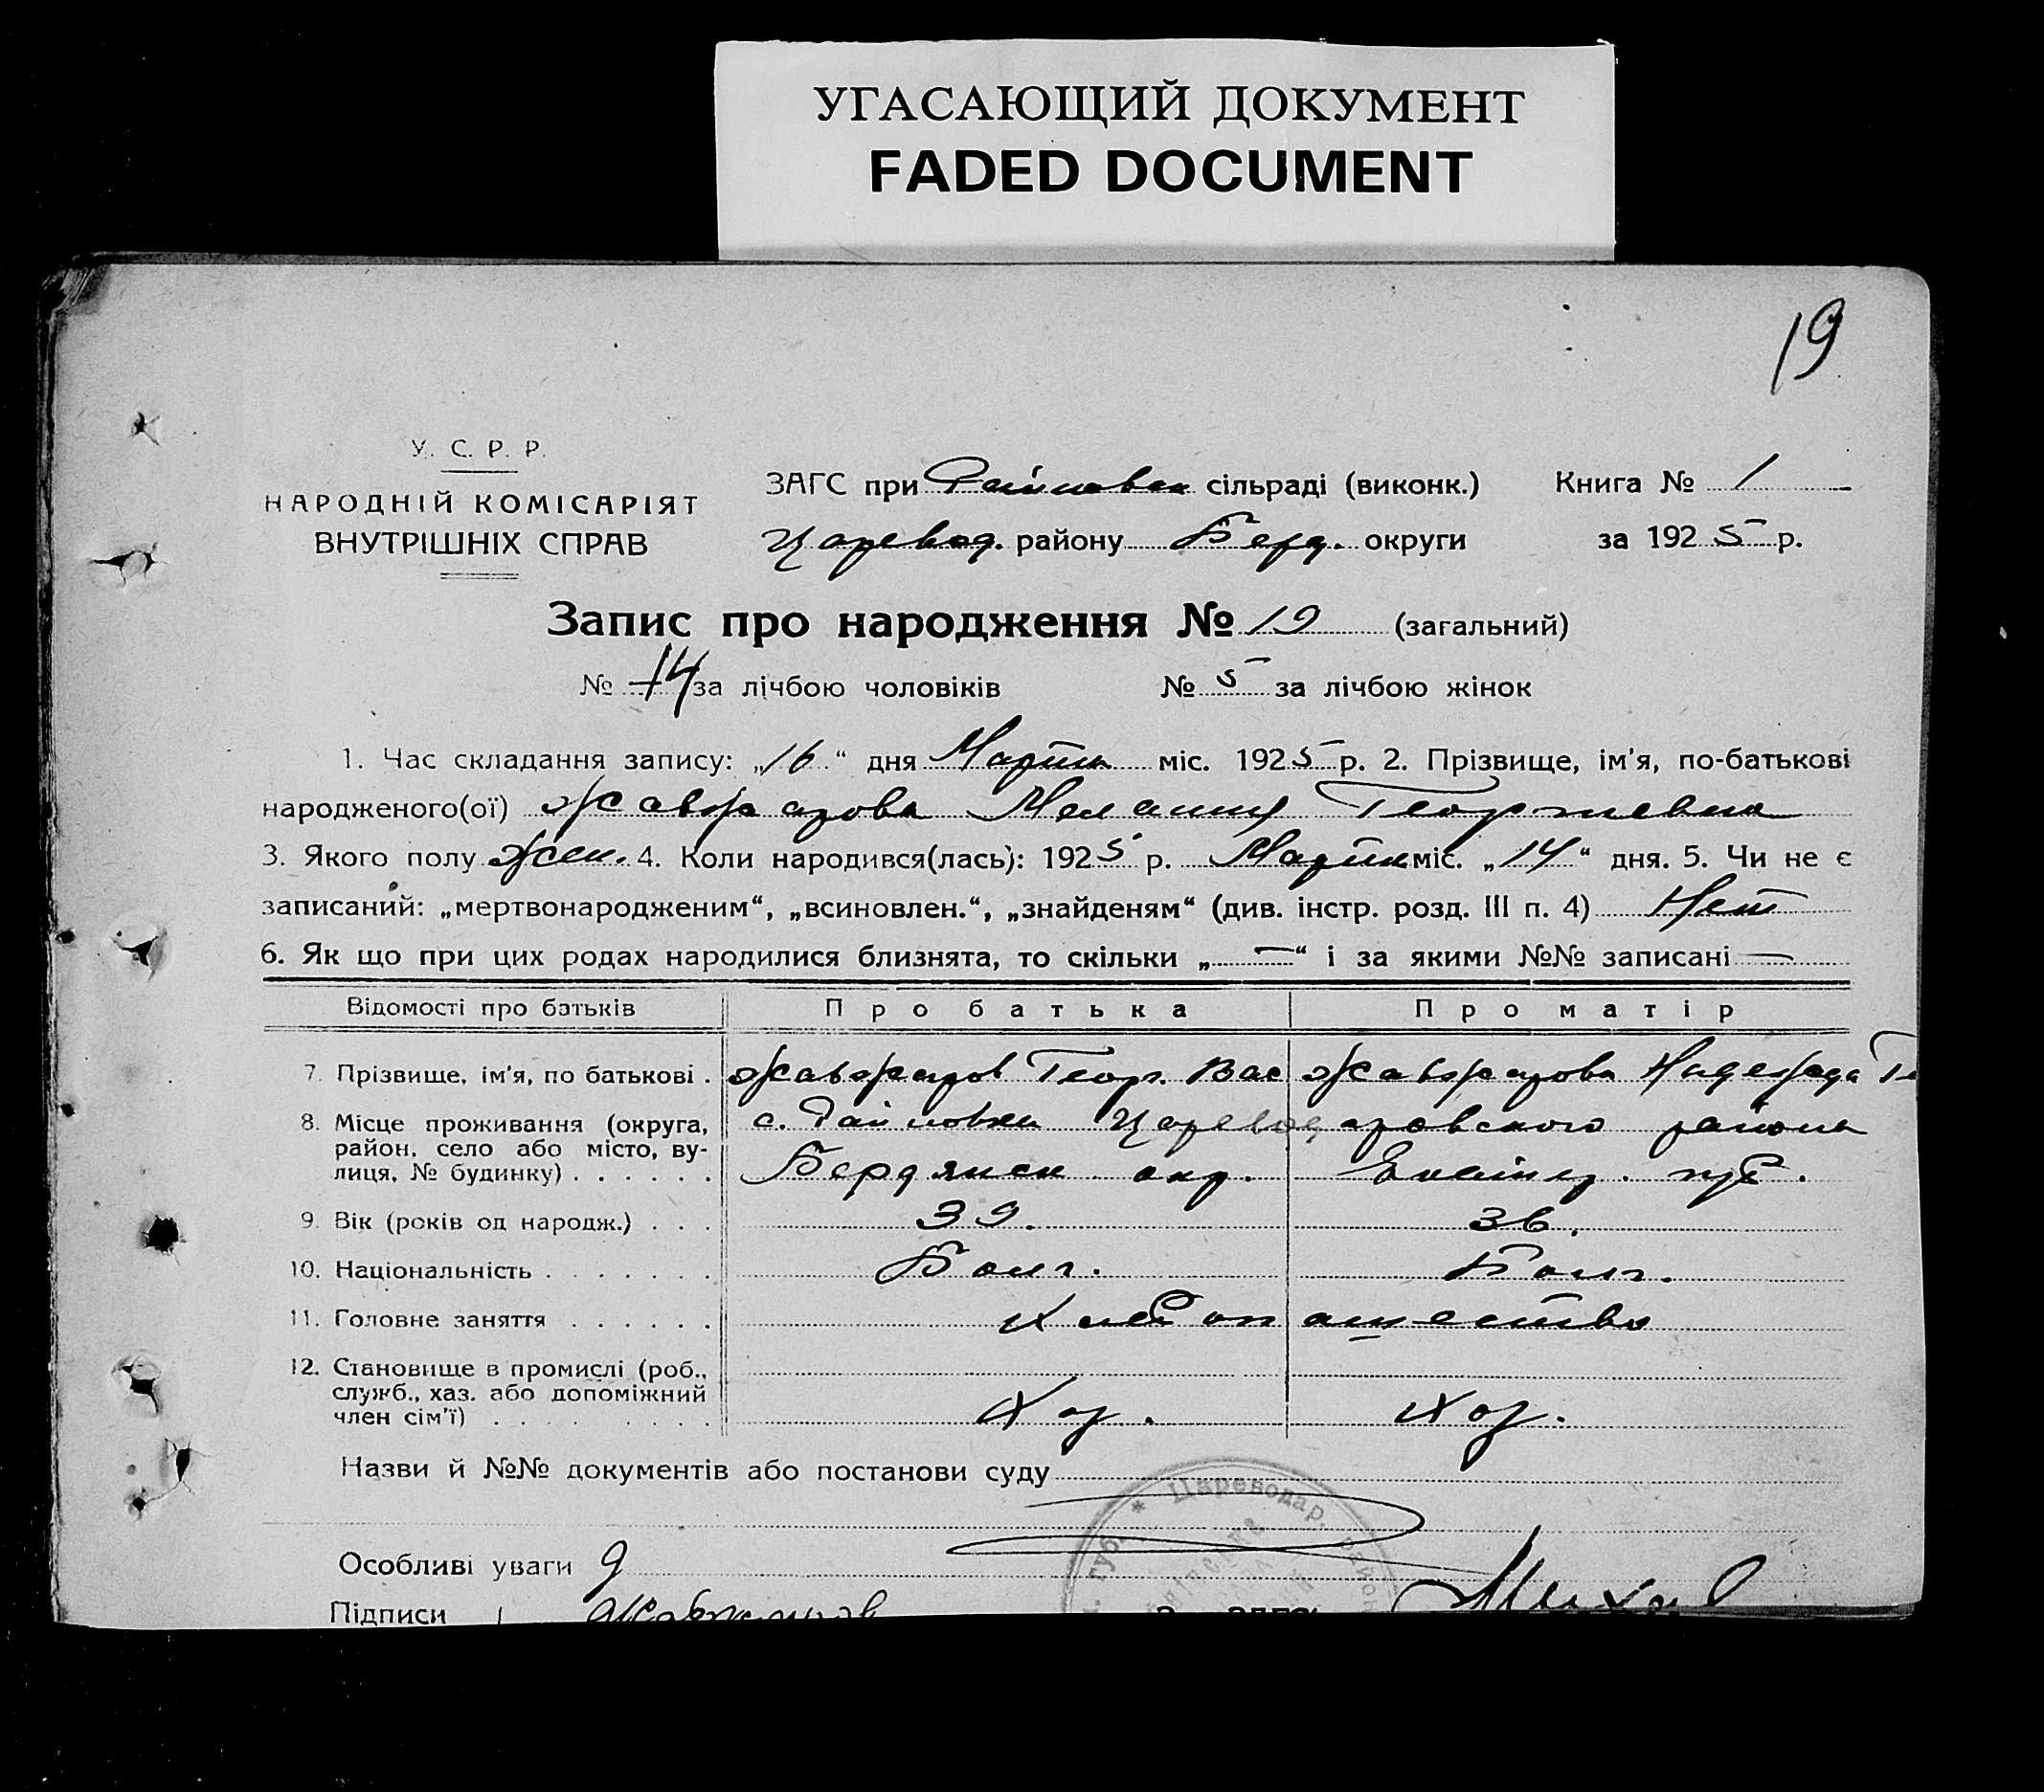 УГАСАЮЩИЙ ДОКУМЕНТ
FADED DOCUMENT
19
У. С. Р. Р.
НАРОДНІЙ КОМІСАРІЯТ
ВНУТРІШНІХ СПРАВ
ЗАГС при Райновск сільраді (виконк.) Книга № 1
Царевод. району Берд. округи за 1925 р.
Запис про народження № 19 (загальний)
№ 14 за лічбою чоловіків № 5 за лічбою жінок
1. Час складання запису: „16“ дня Марта міс. 1925 р. 2. Прізвище, ім'я, по-батькові
народженого(ої) Жавжарова Мелания Георгиевна
3. Якого полу жен. 4. Коли народився(лась): 1925 р. Марта міс. „14“ дня. 5. Чи не є
записаний: „мертвонародженим“, „всиновлен.“, „знайденям“ (див. інстр. розд. III п. 4) Нет
6. Як що при цих родах народилися близнята, то скільки „—“ і за якими №№ записані —
Відомості про батьків Про батька Про матір
7. Прізвище, ім'я, по батькові . Жавжаров Георг. Вас Жавжарова Надежда Ге
8. Місце проживання (округа, район, село або місто, вулиця, № будинку) . . . . . . с. Райновка Цареводаровского района
Бердянск окр. Екатер. губ.
9. Вік (років од народж.) . . . 39. 36.
10. Національність . . . . . . . Болг. Болг.
11. Головне заняття . . . . . . Хлебопашество
12. Становище в промислі (роб., служб., хаз. або допоміжний член сім'ї) . . . . . . . . Хоз. Хоз.
Назви й №№ документів або постанови суду
губ. * Цареводар. район
Особливі уваги
Підписи Жавжаров